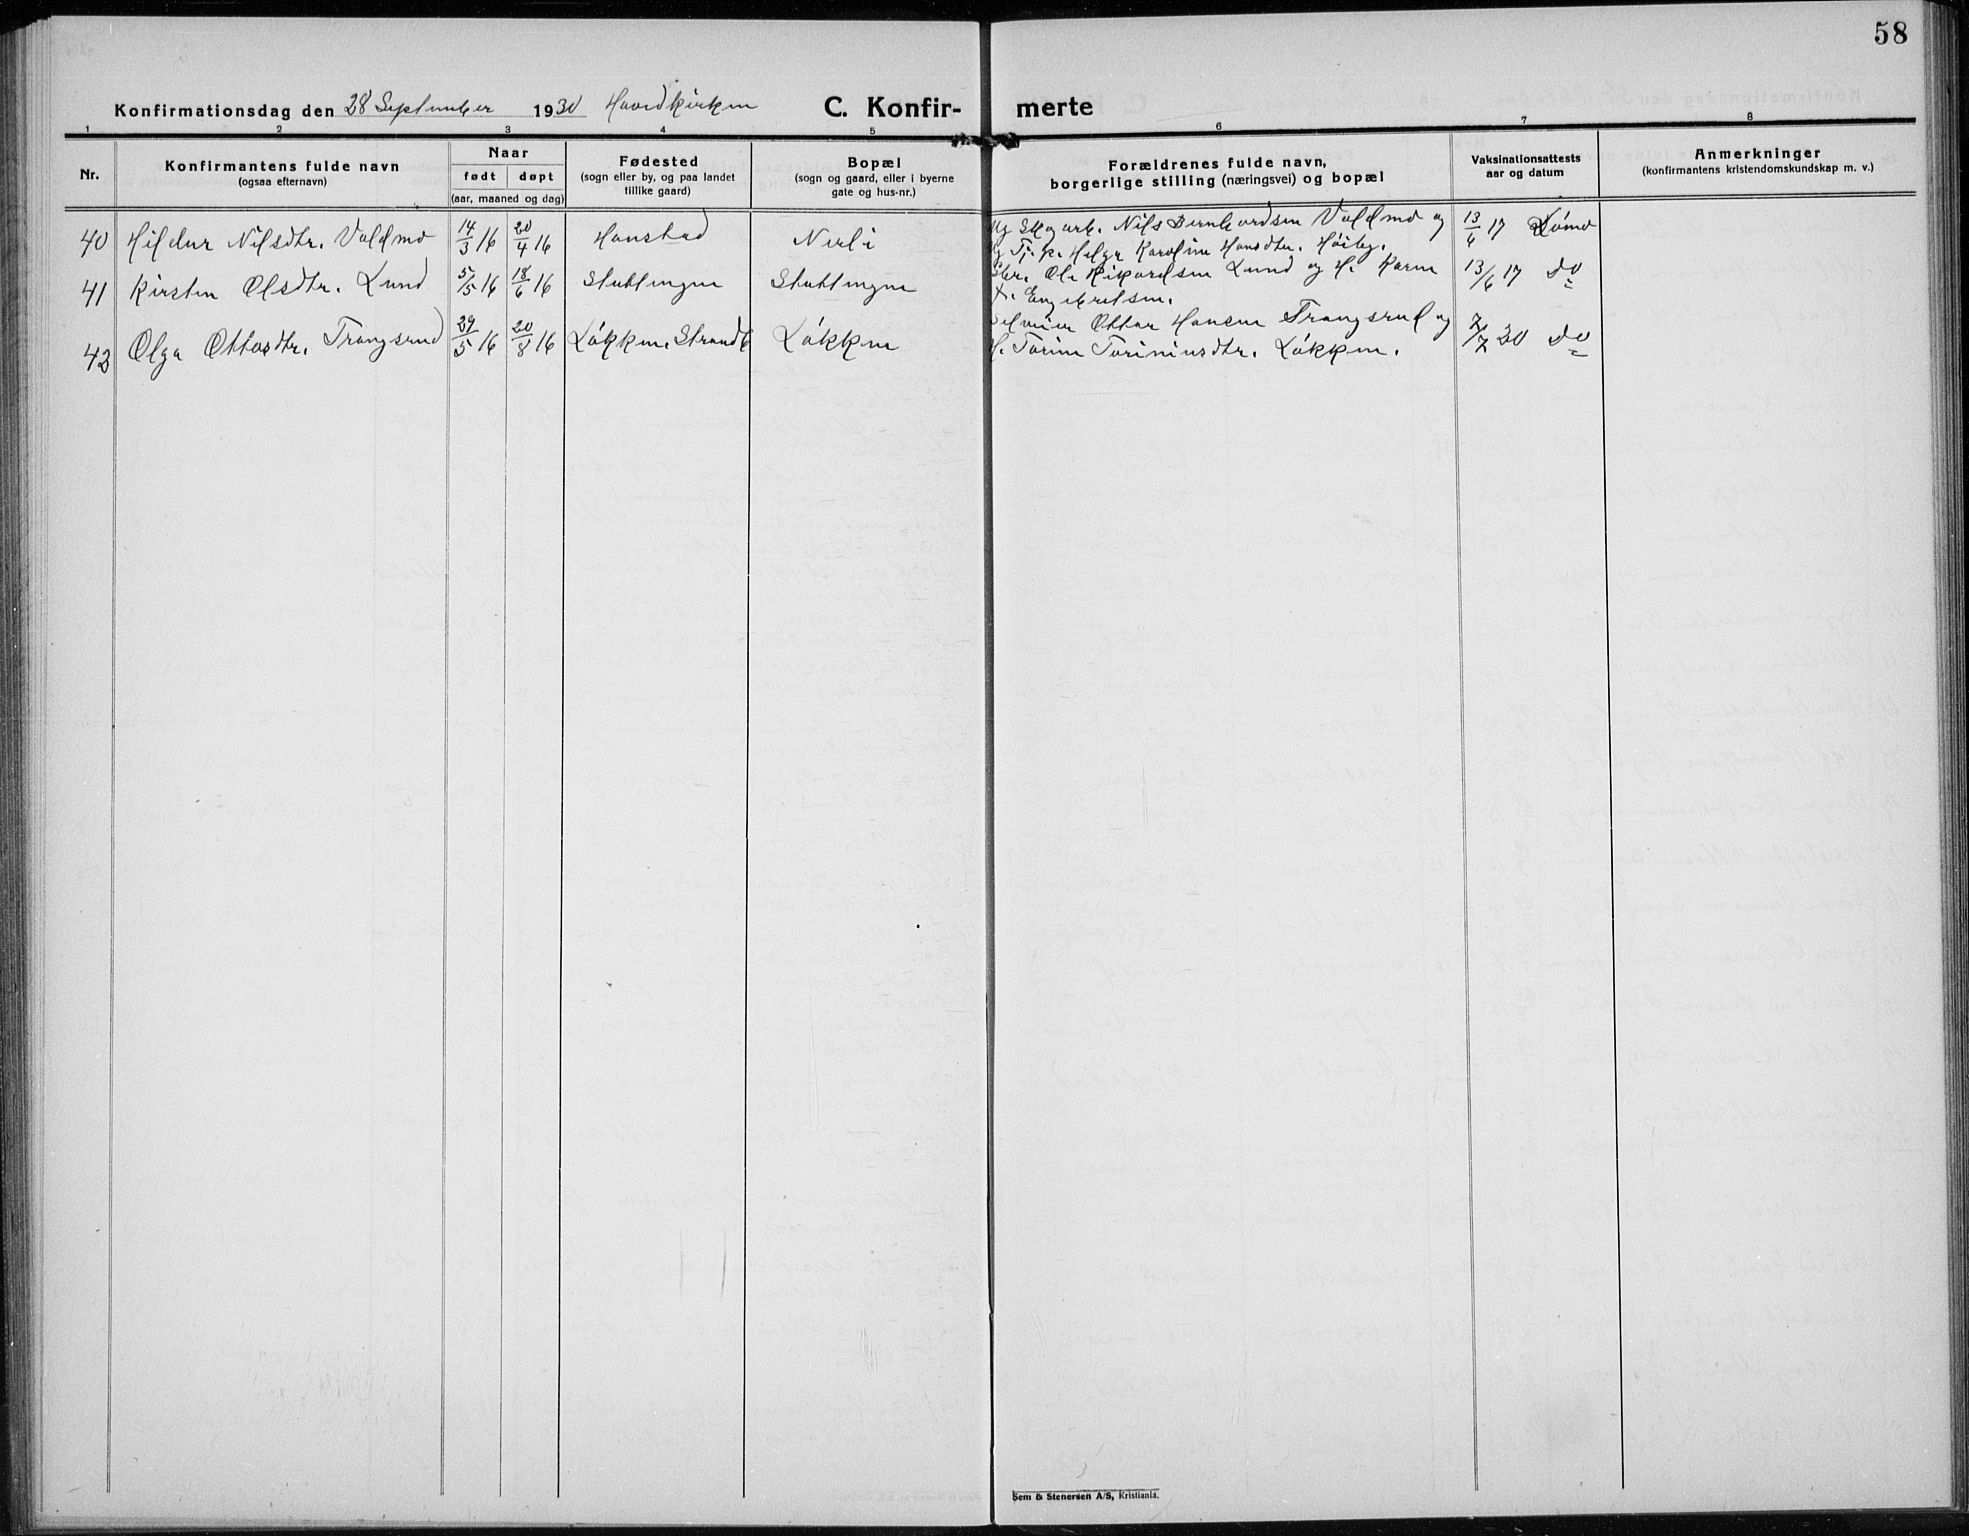 58
Konfirmationsdag den 28 September 1930 Hovedkirken C. Konfir- merte
1 2 3 4 5 6 7 8
Nr.
Konfirmantens fulde navn
(ogsaa efternavn)
Naar
født døpt
(aar, maaned og dag)
Fødested
(sogn eller by, og paa landet
tillike gaard)
Bopæl
(sogn og gaard, eller i byerne
gate og hus-nr.)
Forældrenes fulde navn,
borgerlige stilling (næringsvei) og bopæl
Vaksinationsattests
aar og datum
Anmerkninger
(konfirmantens kristendomskundskap m. v.)
40 Hildur Nilsdtr. Voldmo 14/3 16 20/4 16 Honstad Nerli Ug Skogarb. Nils Bernhardsen Voldmo og 13/6 17 Lømo
Ug Tj. p. Helga Karoline Hansdtr. Høiby.
41 Kirsten Olsdtr. Lund 5/5 16 18/6 16 Stubtingen Stubtingen Ole Rikardsen Lund og H. Karen 13/6 17 do
Engebretsen.
42 Olga Ottosdtr. Trangsrud 29/5 16 20/8 16 Løkken. Strandb Løkken Selveier Otto Hansen Trangsrud og 7/7 30 do
H. Torine Toriniusdtr. Løkken.
Sem & Stenersen A/S, Kristiania.